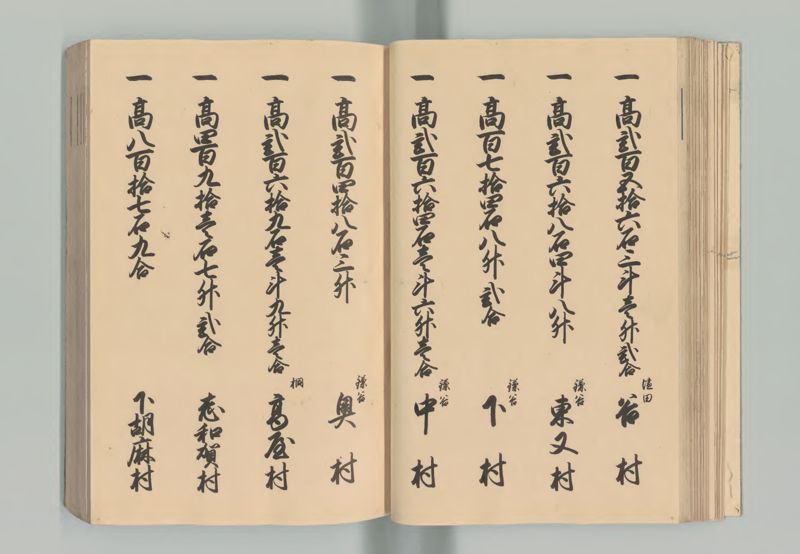 一 高弐百五拾六石三斗壱升弐合 谷村
一 高弐百六拾八石四斗八升 鎌谷 東又村
一 高百七拾四石八升弐合 鎌谷 下村
一 高弐百六拾四石壱斗六升壱合 鎌谷 中村
一 高弐百四拾八石三升 鎌谷 奥村
一 高弐百六拾九石壱斗九升壱合 桐 高屋村
一 高四百九拾壱石七升弐合 志和賀村
一 高八百拾七石九合 下胡麻村